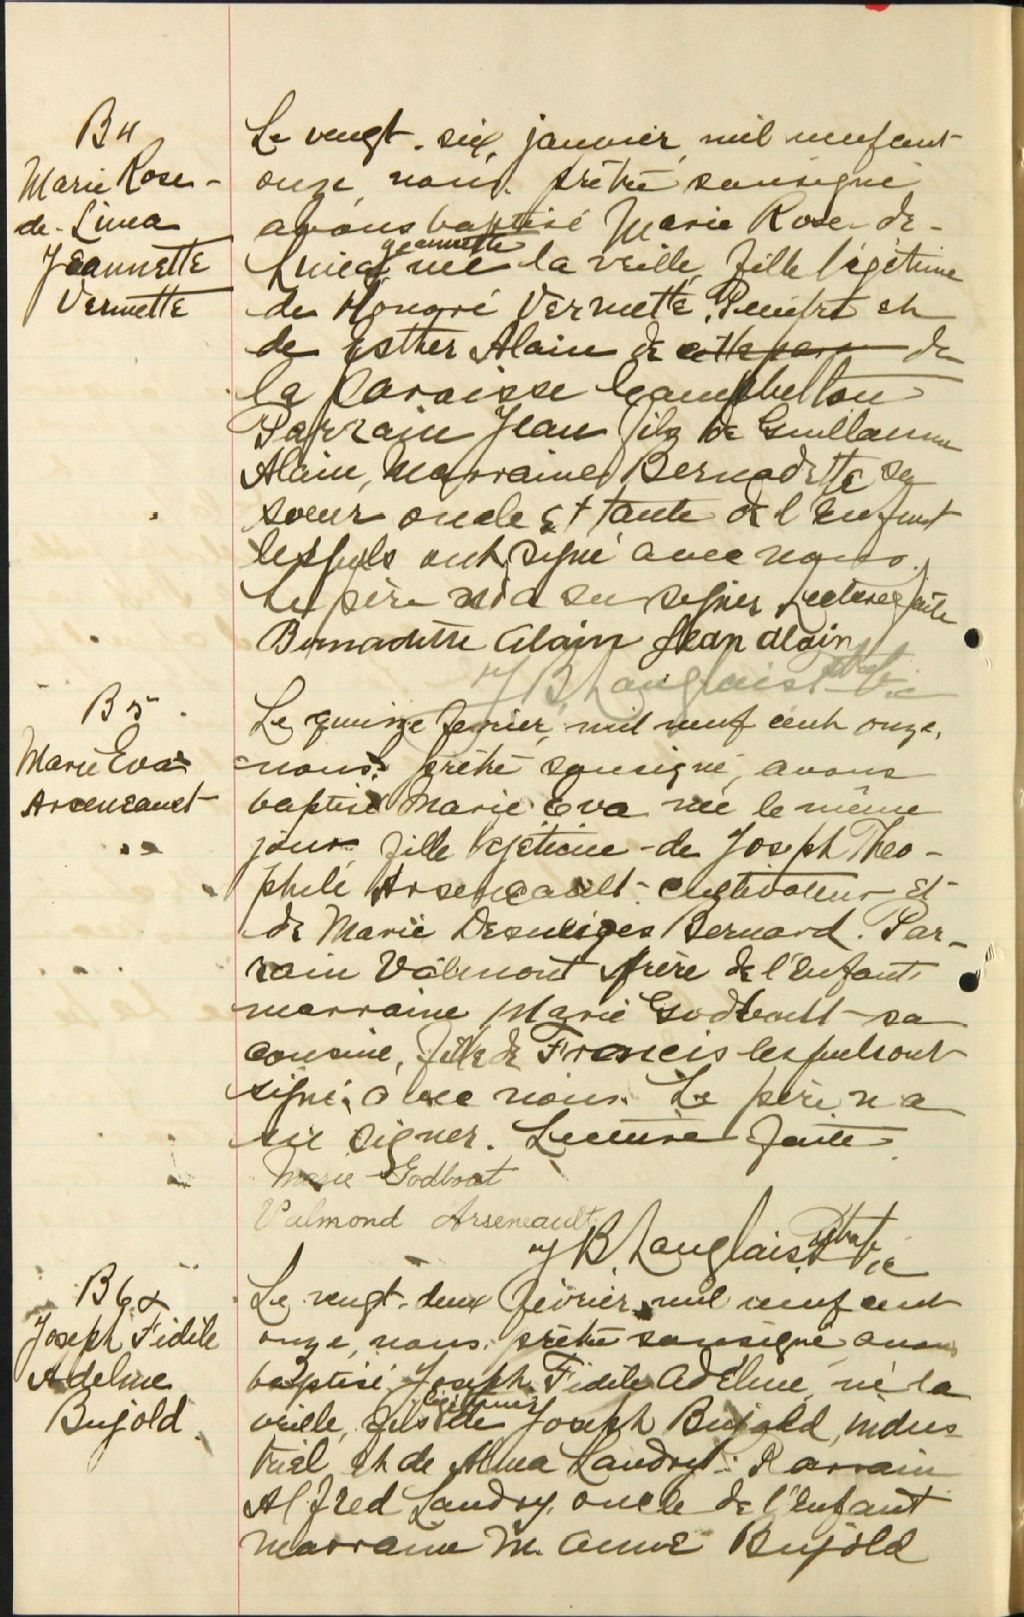 B 4
Marie Rose-
de-Lima
Jeannette
Vermette
Le vengt-six, janvier, mil neufcent
onze, nous, prêtre soussigné
avons baptisé Marie Rose-de-
Jeannette
Lima, née la veille, fille légitime
de Honoré Vermette, Peintre et
de Esther Alain de cette paro de
la Paroisse Campbellton
Parrain Jean fils de Guillaume
Alain, Marraine Bernadette sa
soeur oncle et tante de l'enfant
lesquels ont signé avec nous.
Le père n'a su signer, Lecture faite
Bernadette Alain Jean Alain
J B Langlais Ptre
B 5
Marie Eva
Arseneault
Le quinze fevrier, mil neuf cent onze,
nous, prêtre soussigné, avons
baptisé Marie Eva née le même
jour, fille légitime de Joseph Theo-
phile Arseneault cultivateur et
de Marie Desneiges Bernard. Par-
rain Valmont frère de l'enfant
marraine Marie Godbout sa
cousine, fille de Francis lesquels ont
signé avec nous. Le père n'a
su signer. Lecture faite.
Marie Godbout
Valmond Arseneault
J B Langlais Ptre
B 6
Joseph Fidèle
Adelme
Bujold
Le vengt-deux février mil neuf cent
onze, nous, prêtre soussigné avons
baptisé Joseph Fidele Adelme, né la
légitime
veille, fils de Joseph Bujold, indus-
triel et de Alma Landry. Parrain
Alfred Landry, oncle de l'enfant
marraine M. Anne Bujold